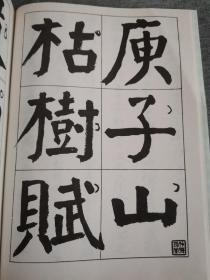 庾子山
枯樹賦